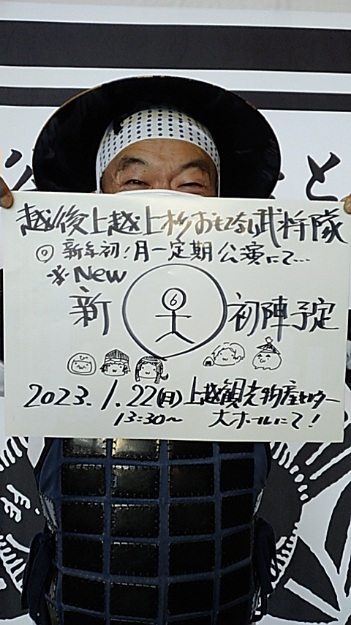 越後上越上杉おもてなし武将隊
◎ 新年初!月一定期公演にて…
※New
新 6 初陣予定
2023.1.22(日) 上越観光物産センター
13:30~ 大ホールにて!
と